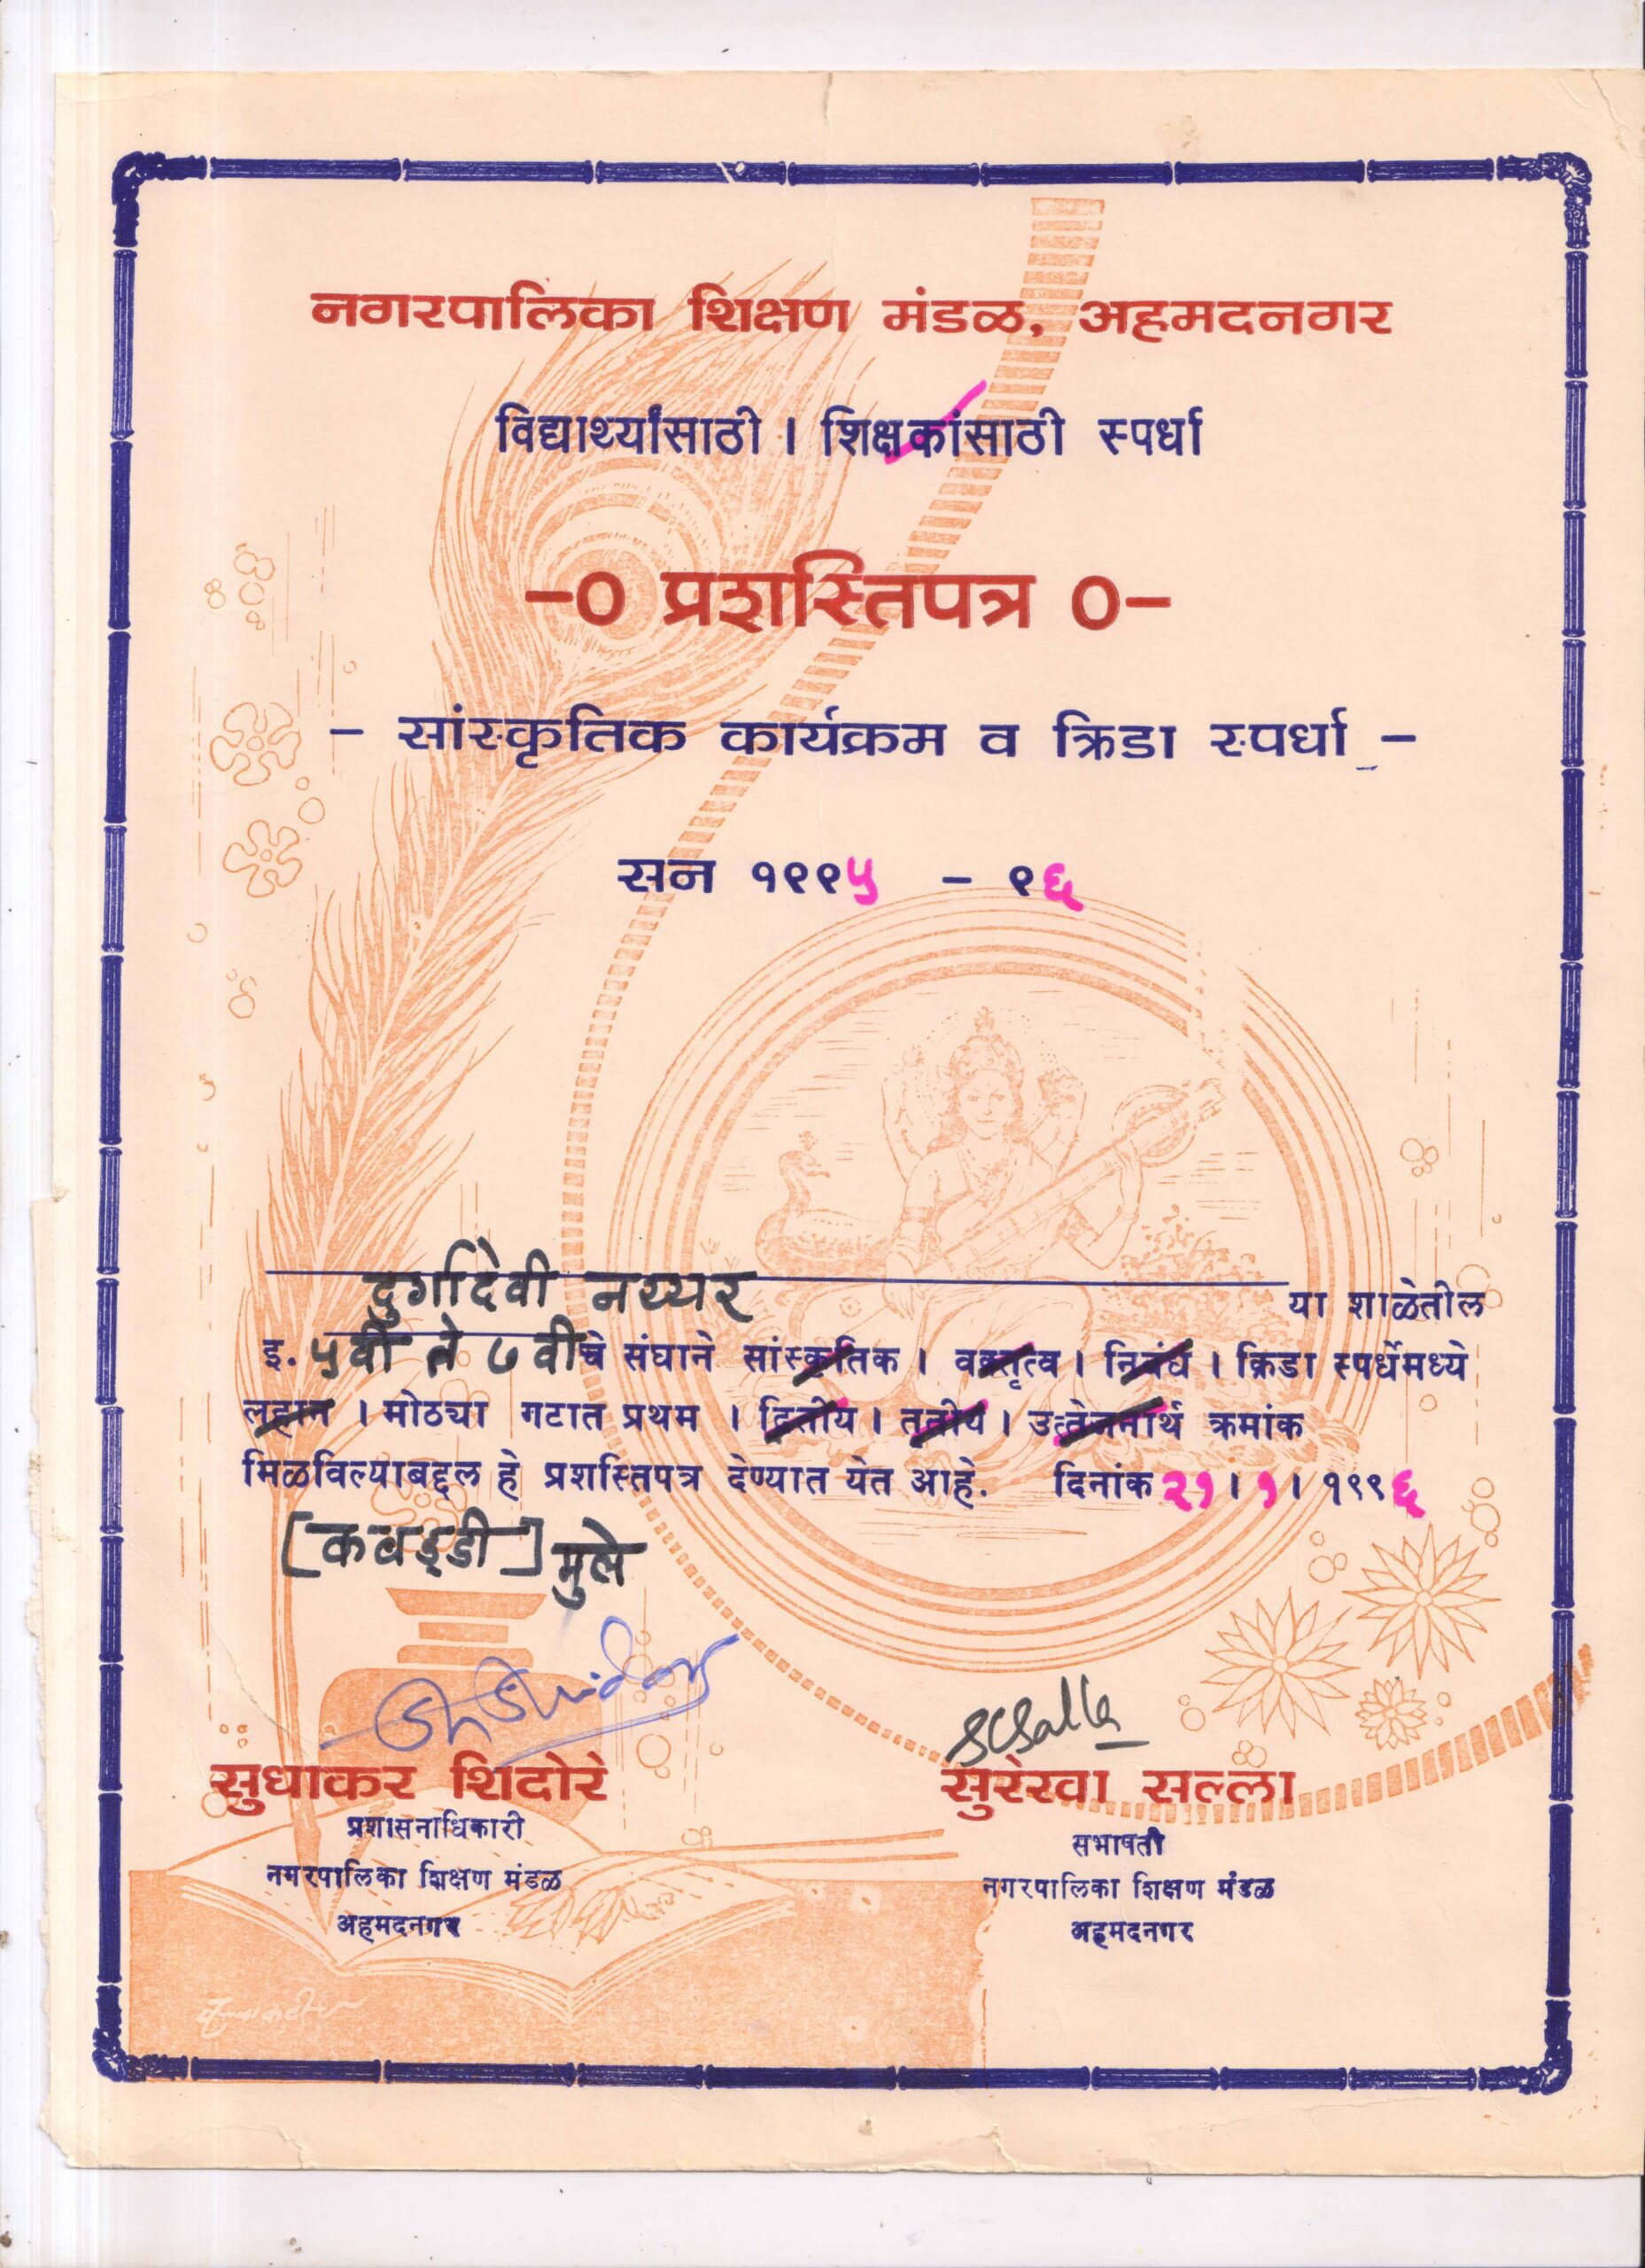 नगरपालिका शिक्षण मंडळ, अहमदनगर
विद्यार्थ्यांसाठी । शिक्षकांसाठी स्पर्धा
-० प्रशस्तिपत्र ०-
- सांस्कृतिक कार्यक्रम व क्रिडा स्पर्धा -
सन १९९५ - ९६
दुर्गादेवी नय्यर या शाळेतील
इ. ५वी ते ७ वी चे संघाने सांस्कृतिक । वक्तृत्व । निबंध । क्रिडा स्पर्धेमध्ये
लहान । मोठ्या गटात प्रथम । द्वितीय । तृतीय । उत्तेजनार्थ क्रमांक
मिळविल्याबद्दल हे प्रशस्तिपत्र देण्यात येत आहे. दिनांक २१ । १ । १९९६
[कबड्डी] मुले
सुधाकर शिदोरे
प्रशासनाधिकारी
नगरपालिका शिक्षण मंडळ
अहमदनगर
सुरेखा सल्ला
सभापती
नगरपालिका शिक्षण मंडळ
अहमदनगर